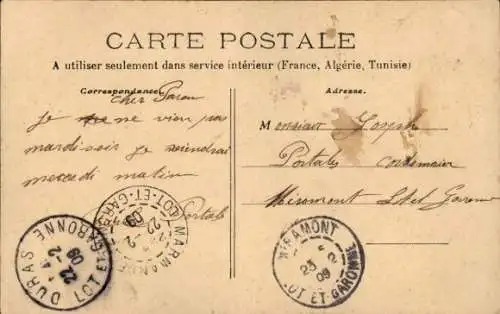 CARTE POSTALE
A utiliser seulement dans service intérieur (France, Algérie, Tunisie)
Correspondance.
Adresse.
cher
je ne vien pas
mardi soir je viendrai
mecredi matin
Portals
Monsieur Joseph
Portales cordonnier
Miramont Lot et Garonne
DURAS
LOT-ET-GARONNE
22
-2
09
MARMANDE
LOT-ET-GARONNE
22
-2
09
MIRAMONT
LOT ET GARONNE
23
2
09